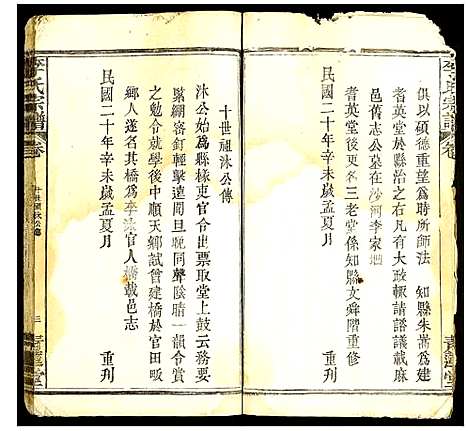 李氏宗譜
卷
俱以碩德重望爲時所師法　知縣朱嵩爲建
耆英堂於縣治之右凡有大政輒請諮議載麻
邑舊志公墓在沙河李家垇
耆英堂後更名三老堂係知縣文舜階重修
民國二十年辛未歲孟夏月　重刊
青蓮堂
李氏宗譜
卷
十世祖沐公傳
三
青蓮堂
十世祖沐公傳
沐公始爲縣椽吏官令出票取堂上鼓云務要
緊綳密釘輕擊遠聞旦晚同聲陰晴一韻令賞
之勉令就學後中順天鄉試曾建橋於官田畈
鄉人遂名其橋爲李沐官人橋載邑志
民國二十年辛未歲孟夏月　重刊